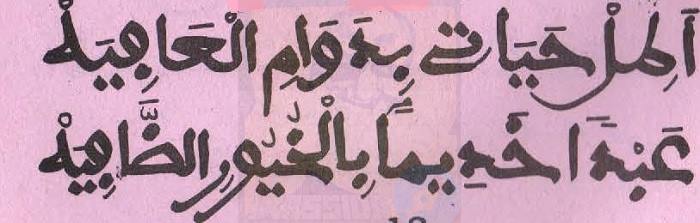 اَطِلْ حَيَاتِي بِدَوَامِ الْعَافِيَهْ
عَبْدًا خَدِيمًا بِالْخُيُورِ الضَّافِيَهْ